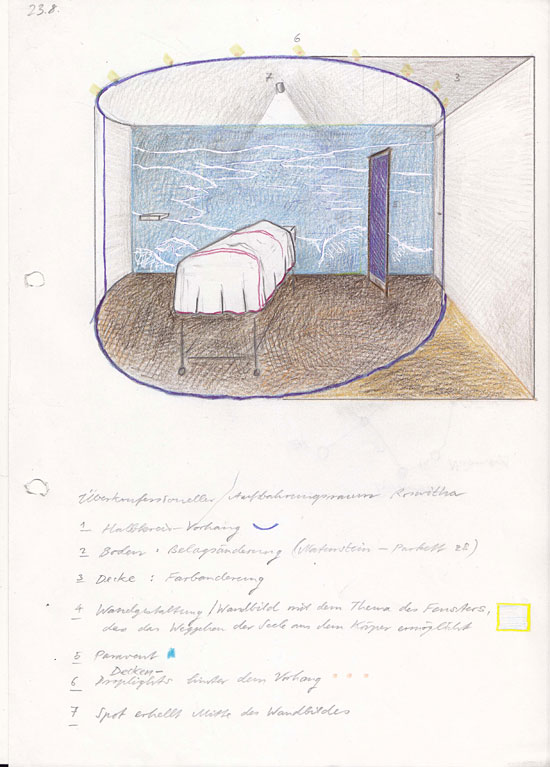 23.8.
6
7
3
5
Überkonfessioneller Aufbahrungsraum Roswitha
1 Halbkreis-Vorhang
2 Boden : Belagsänderung (Naturstein - Parkett zB)
3 Decke : Farbänderung
4 Wandgestaltung / Wandbild mit dem Thema des Fensters,
das das Weggehen der Seele aus dem Körper ermöglicht
5 Paravent
Decken-
6 hinter dem Vorhang
7 Spot erhellt Mitte des Wandbildes